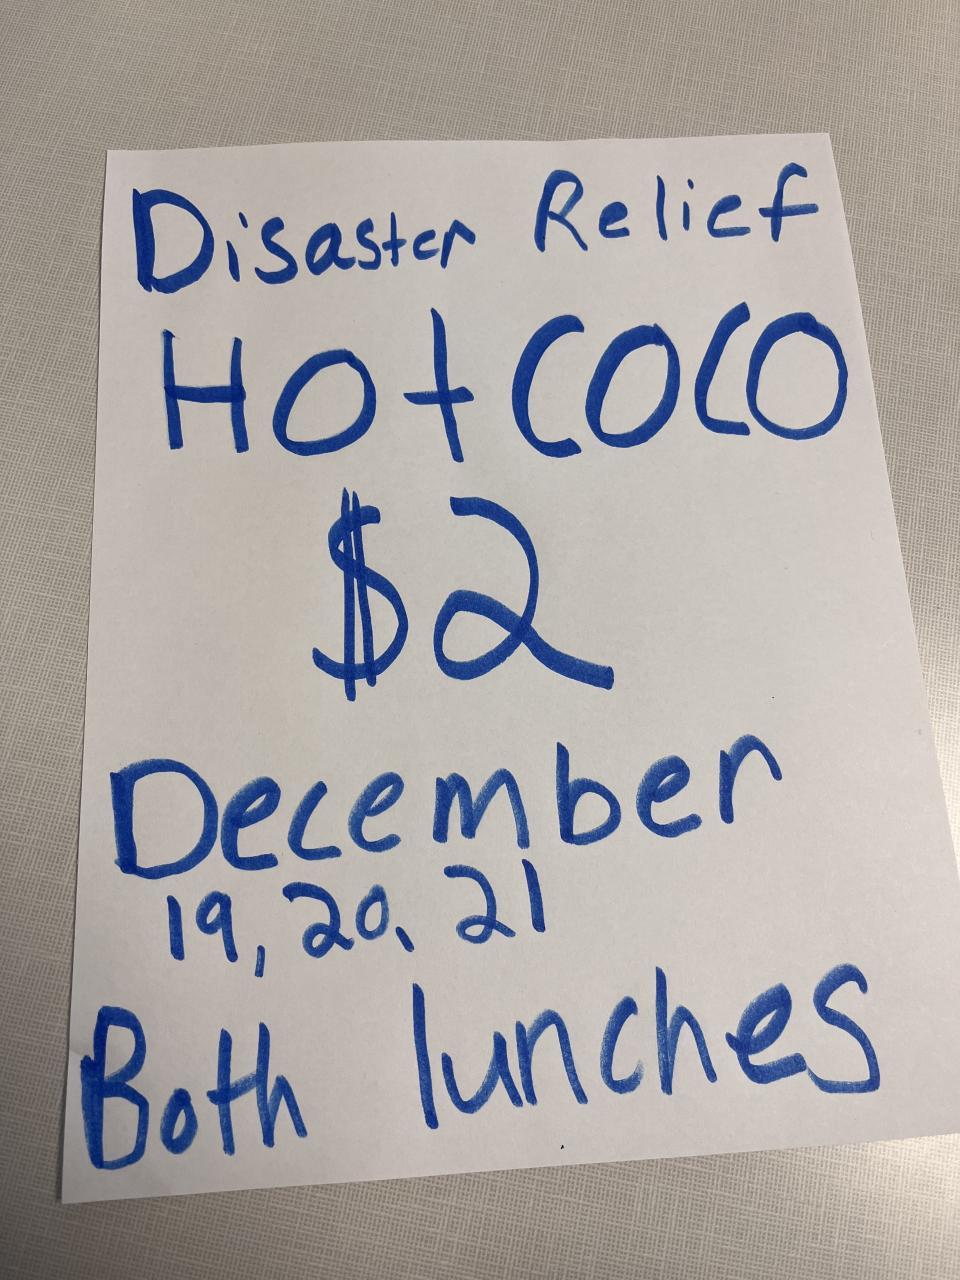 Disaster Relief
Hot COCO
$2
December
19, 20, 21
Both lunches